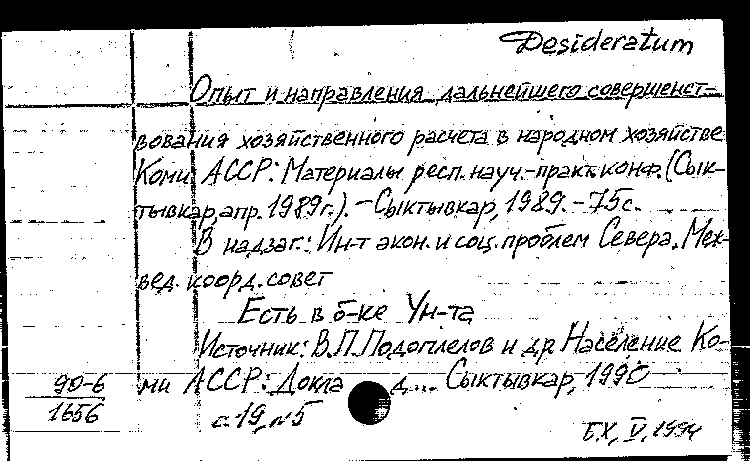 Desideratum
Опыт и направления дальнейшего совершенст-
вования хозяйственного расчета в народном хозяйстве
Коми АССР: Материалы респ. науч.-практ. конф. (Сык-
тывкар, апр. 1989г.). – Сыктывкар, 1989. – 75с.
В надзаг.: Ин-т экон. и соц. проблем Севера. Меж-
вед. коорд. совет
Есть в б-ке Ун-та
Источник: В.П. Подоплелов и др. Население Ко-
90-6 ми АССР: Докла д... Сыктывкар, 1990
1656 с. 19, №5
Б.Х, V, 1994